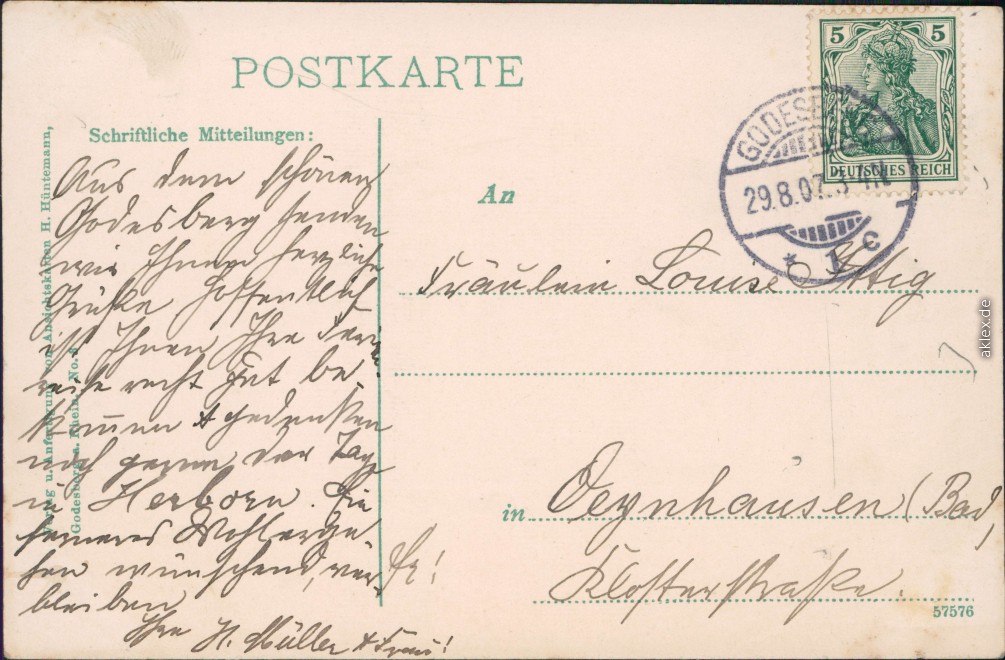 POSTKARTE
Schriftliche Mitteilungen:
Aus dem schönen
Godesberg senden
wir Ihnen herzliche
Grüße. Hoffentlich
ist Ihnen Ihre Ferien
reise recht gut be
kommen & gedenken
noch gerne der Tage
in Herborn.
ferneres Wohlerge-
hen wünschend, ver
bleiben
Ihre H. Müller & Frau!
Verlag u. Anfertigung von Ansichtskarten H. Hüntemann,
Godesberg a. Rhein. No.
An
Fräulein Louise
in Oeynhausen (Bad)
Klosterstraße.
57576
5 5
DEUTSCHES REICH
GODESBERG
29.8.07. 3-4N
* 1 c
aklex.de